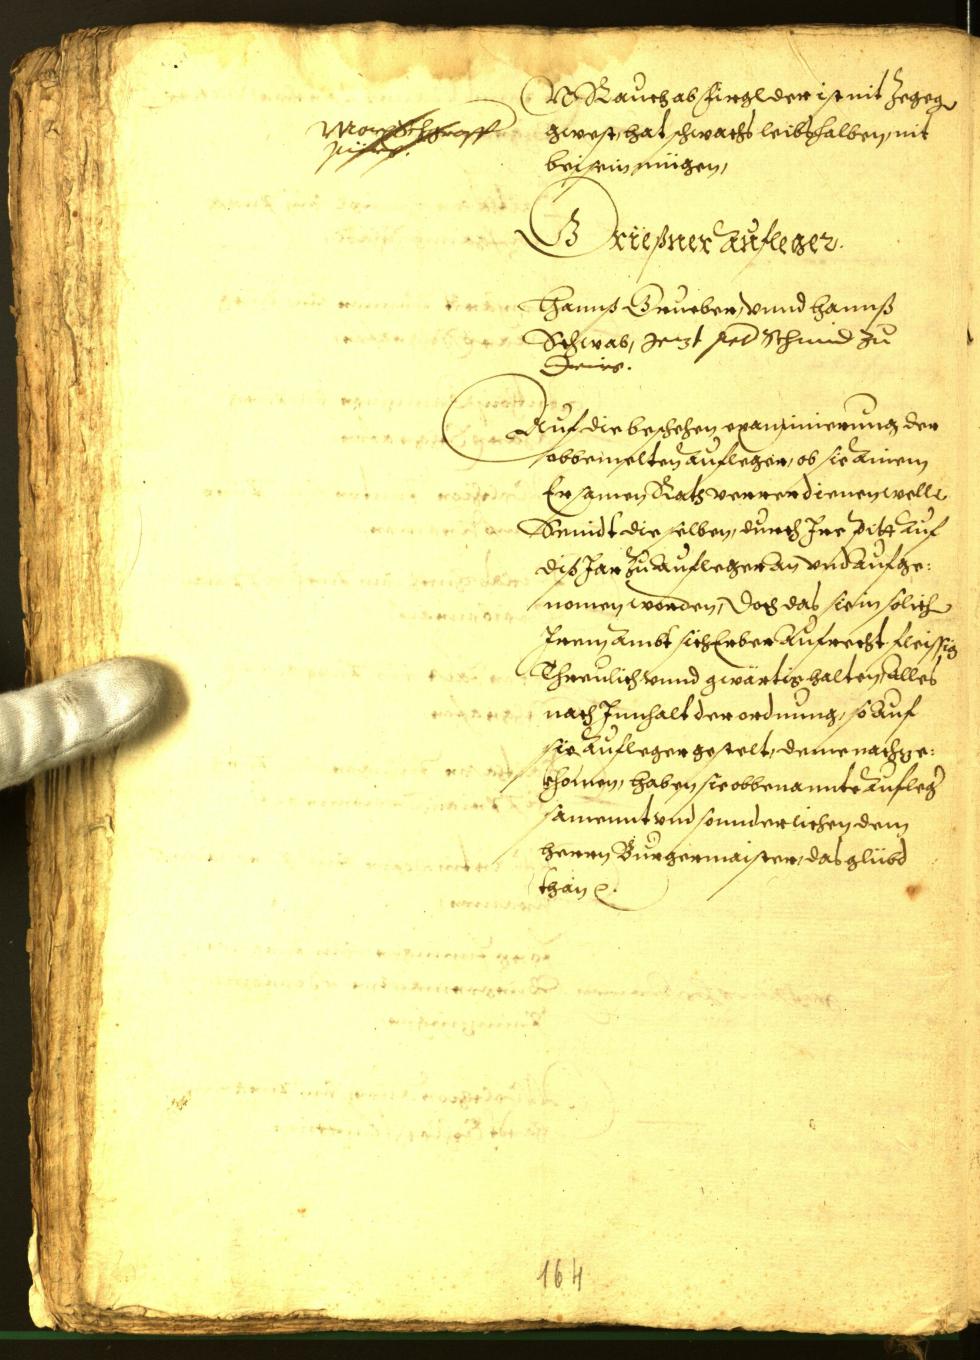 N Rauchabsürgl der ist nit zegeg
gwest, hat schwachs leibs halben, nit
bei sein mügen,
Griesner Aufleger.
Hanns Grueber, vnnd Hanns
Schwab, Jerzt Schmid zu
Auf die beschehen examinierung der
obbemelten Aufleger, ob sie ainem
Ersamen Rath verrer dienen welle
Seindt die selben, durch Jre pitt auf
dis Jar zu auflegern an vnd aufge:
nomen worden, Doch das sie in solich
Jrem Ambt sich Erber Aufrecht fleissig
Threulich vnnd gwärtig halten, Alles
nach Jnnhalt der ordnung, so auf
sie Aufleger gestelt, deme nachze:
khomen, haben sie obbenannte Aufleg
samennt vnd sonnderlichen dem
herrn Burgermaister, das glübd
than
164